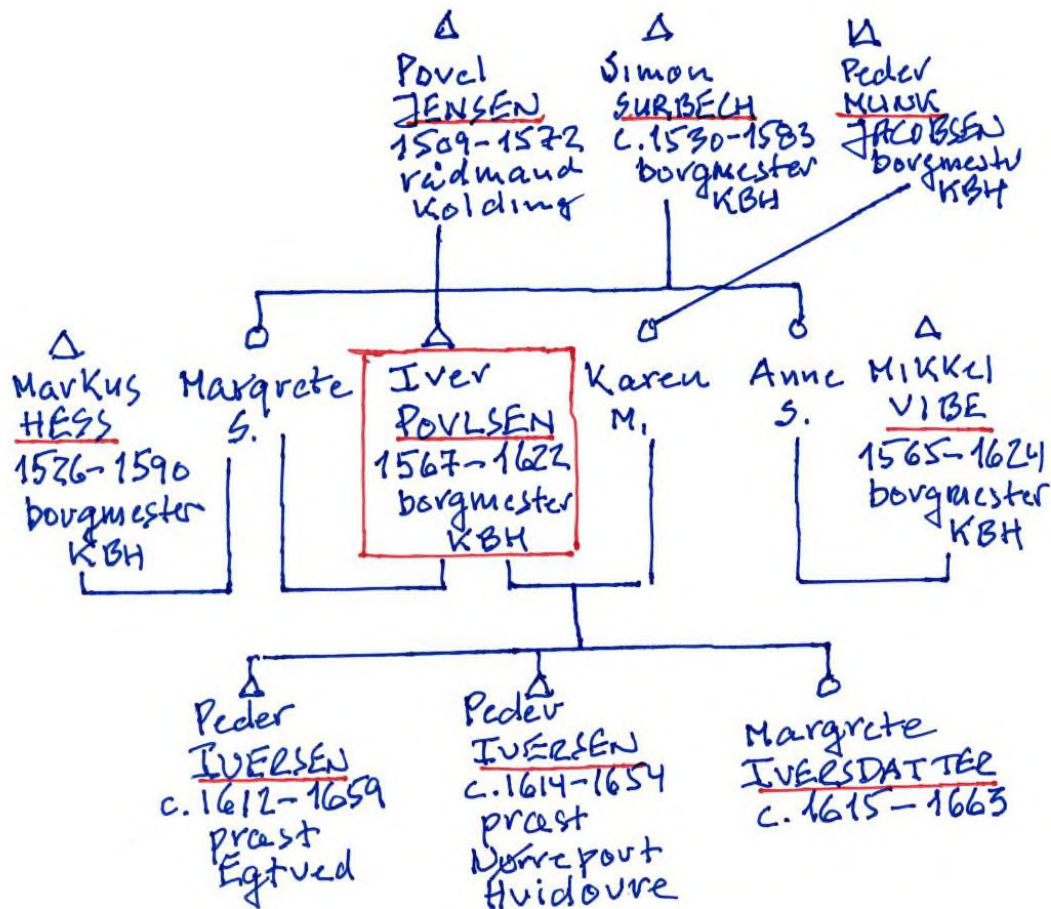 Povel
JENSEN
1509-1572
rådmand
Kolding
Simon
SURBECH
c.1530-1583
borgmester
KBH
Peder
MUNK
JACOBSEN
borgmester
KBH
Markus
HESS
1526-1590
borgmester
KBH
Margrete
S.
Iver
POVLSEN
1567-1622
borgmester
KBH
Karen
M.
Anne
S.
MIKKEL
VIBE
1565-1624
borgmester
KBH
Peder
IVERSEN
c.1612-1659
præst
Egtved
Peder
IVERSEN
c.1614-1654
præst
Nørreport
Hvidovre
Margrete
IVERSDATTER
c.1615-1663